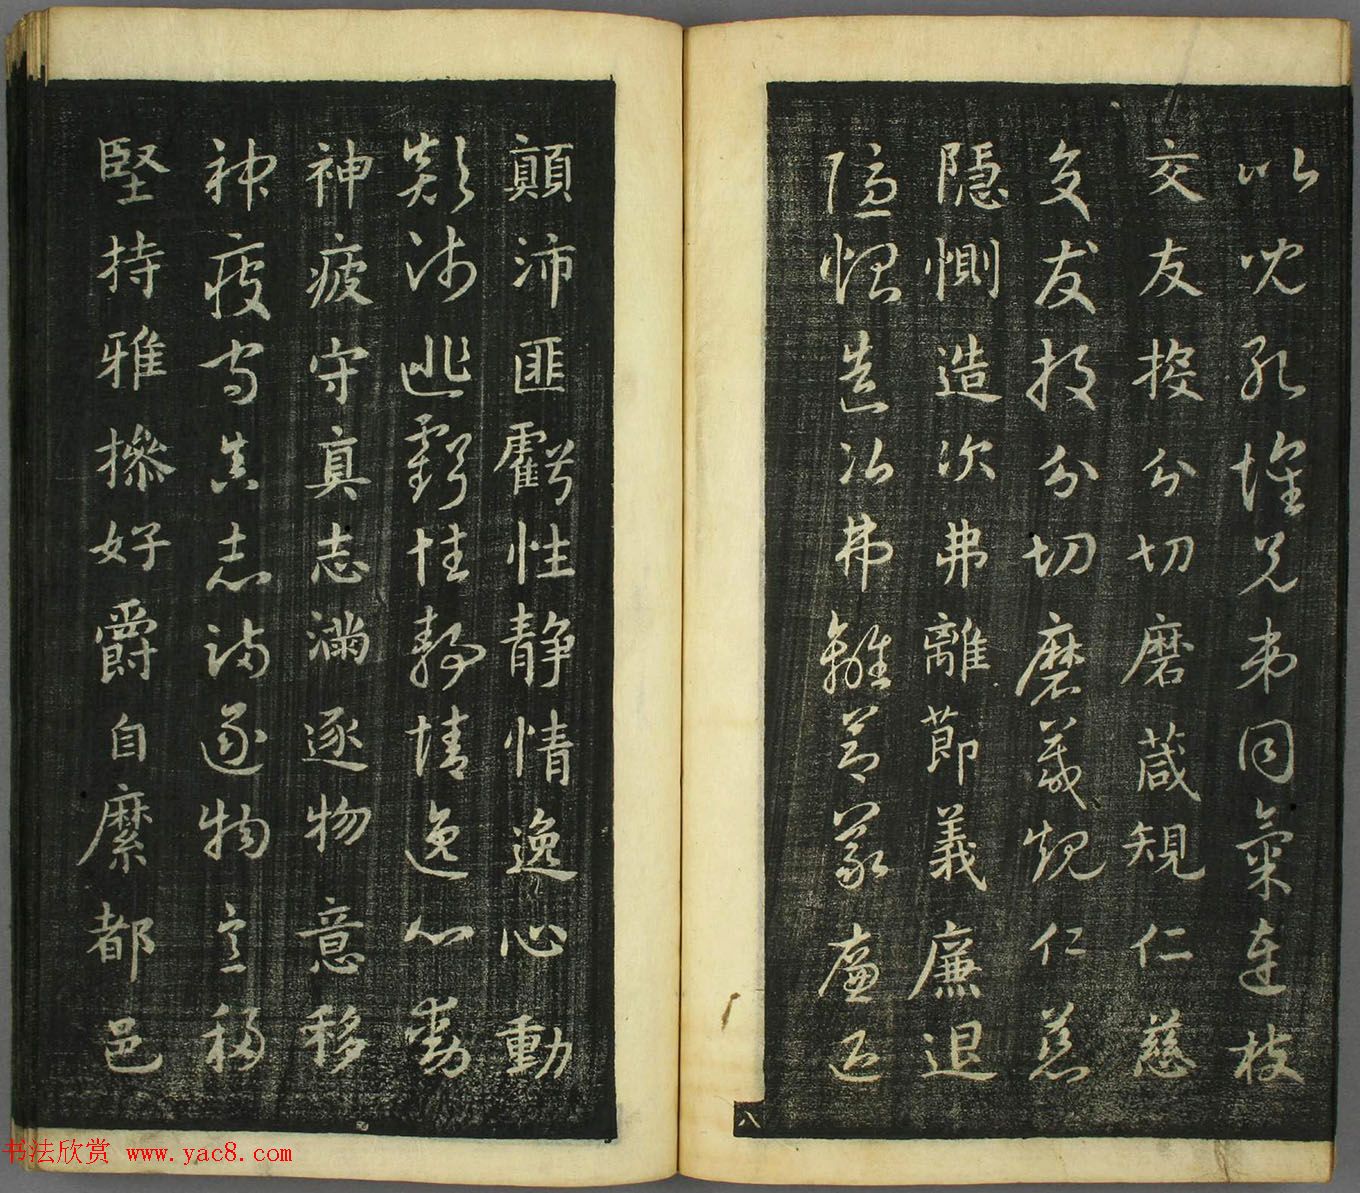 以比孔懷兄弟同氣連枝
交友投分切磨箴規仁慈
交友投分切磨箴規仁慈
隱惻造次弗離節義廉退
隱惻造次弗離節義廉退
八
顛沛匪虧性靜情逸心動
顛沛匪虧性靜情逸心動
神疲守真志滿逐物意移
神疲守真志滿逐物意移
堅持雅操好爵自縻都邑
书法欣赏 www.yac8.com